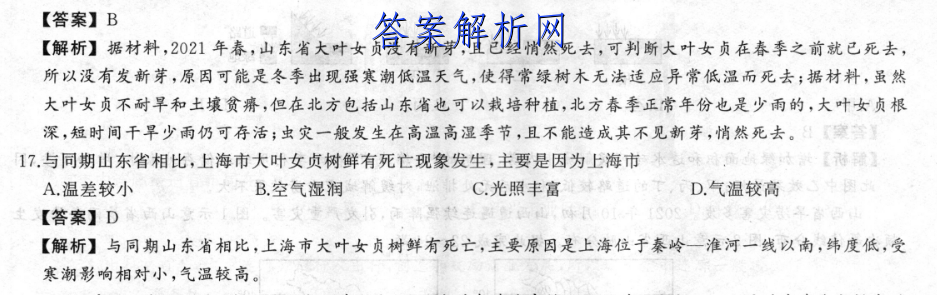 【答案】B
答案解析网
【解析】据材料,2021年春,山东省大叶女贞没有新芽,且已经悄然死去,可判断大叶女贞在春季之前就已死去,
所以没有发新芽,原因可能是冬季出现强寒潮低温天气,使得常绿树木无法适应异常低温而死去;据材料,虽然
大叶女贞不耐旱和土壤贫瘠,但在北方包括山东省也可以栽培种植,北方春季正常年份也是少雨的,大叶女贞根
深,短时间干旱少雨仍可存活;虫灾一般发生在高温高湿季节,且不能造成其不见新芽,悄然死去。
17.与同期山东省相比,上海市大叶女贞树鲜有死亡现象发生,主要是因为上海市
A.温差较小 B.空气湿润 C.光照丰富 D.气温较高
【答案】D
【解析】与同期山东省相比,上海市大叶女贞树鲜有死亡,主要原因是上海位于秦岭—淮河一线以南,纬度低,受
寒潮影响相对小,气温较高。